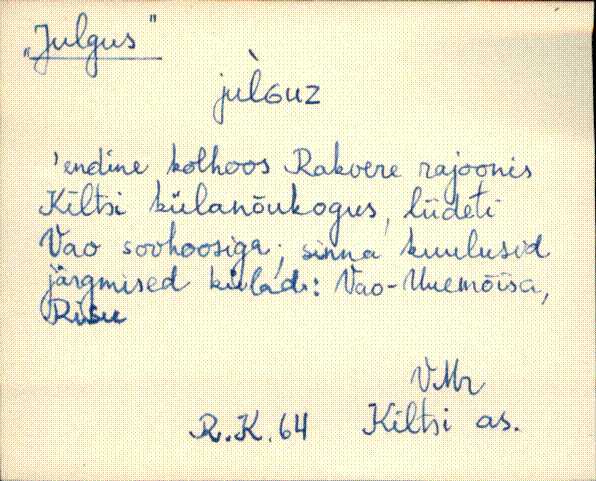 „Julgus"
jùlGUZ
'endine kolhoos Rakvere rajoonis
Kiltsi külanõukogus, liideti
Vao sovhoosiga; sinna kuulusid
järgmised külad: Vao-Uuemõisa,
Riisu
VMr
R.K. 64 Kiltsi as.